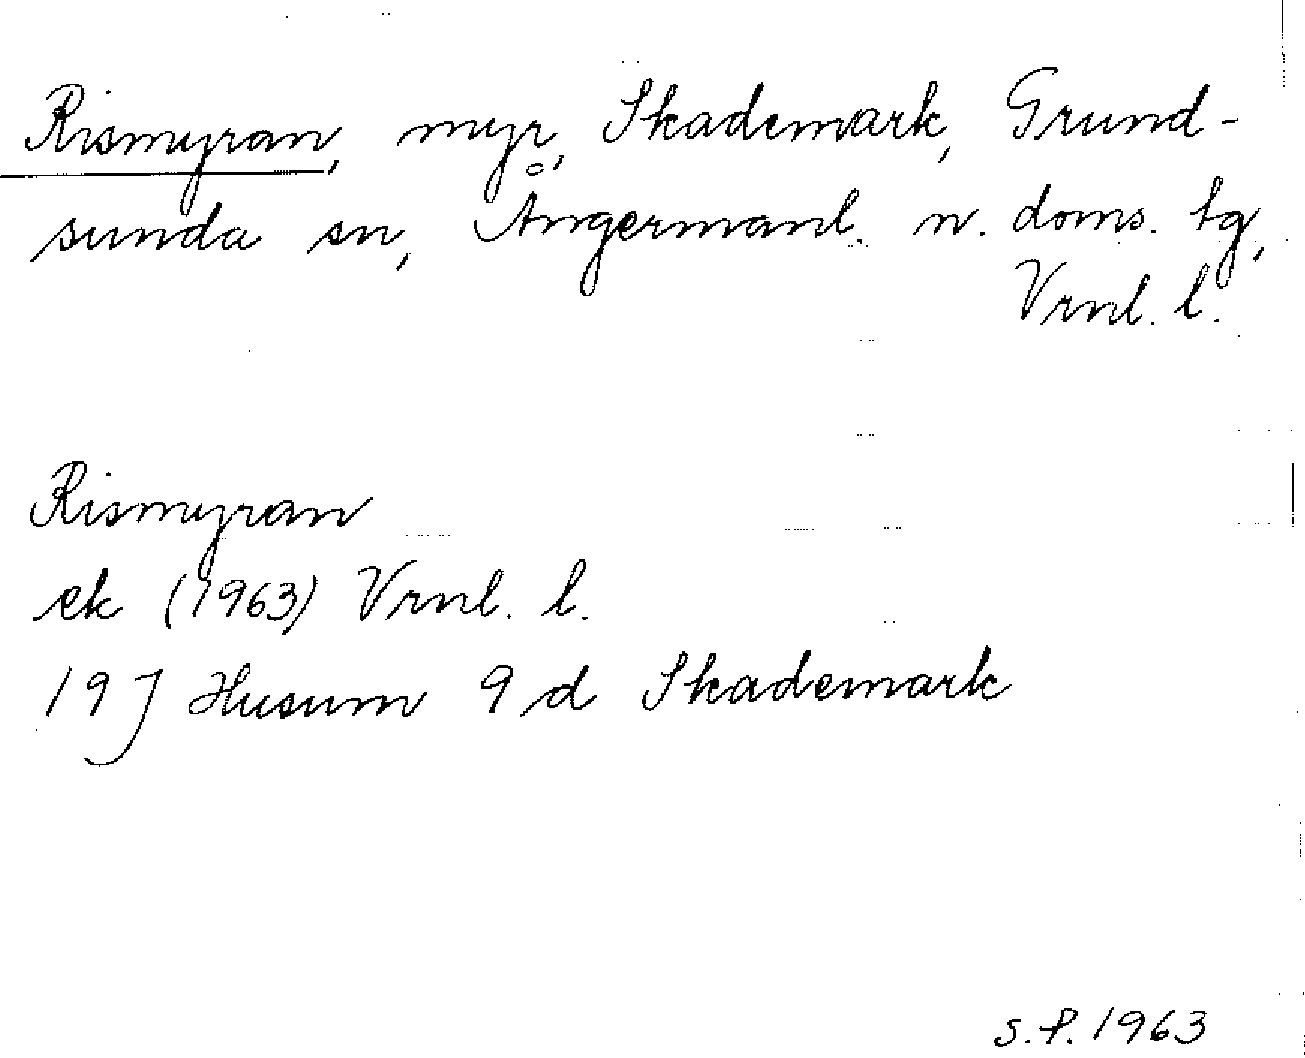 Rismyran, myr, Skademark, Grund-
sunda sn, Ångermanl. n. doms. tg,
Vrnl. l.
Rismyran
ek (1963) Vrnl. l.
19 J Husum 9 d Skademark
S.P. 1963